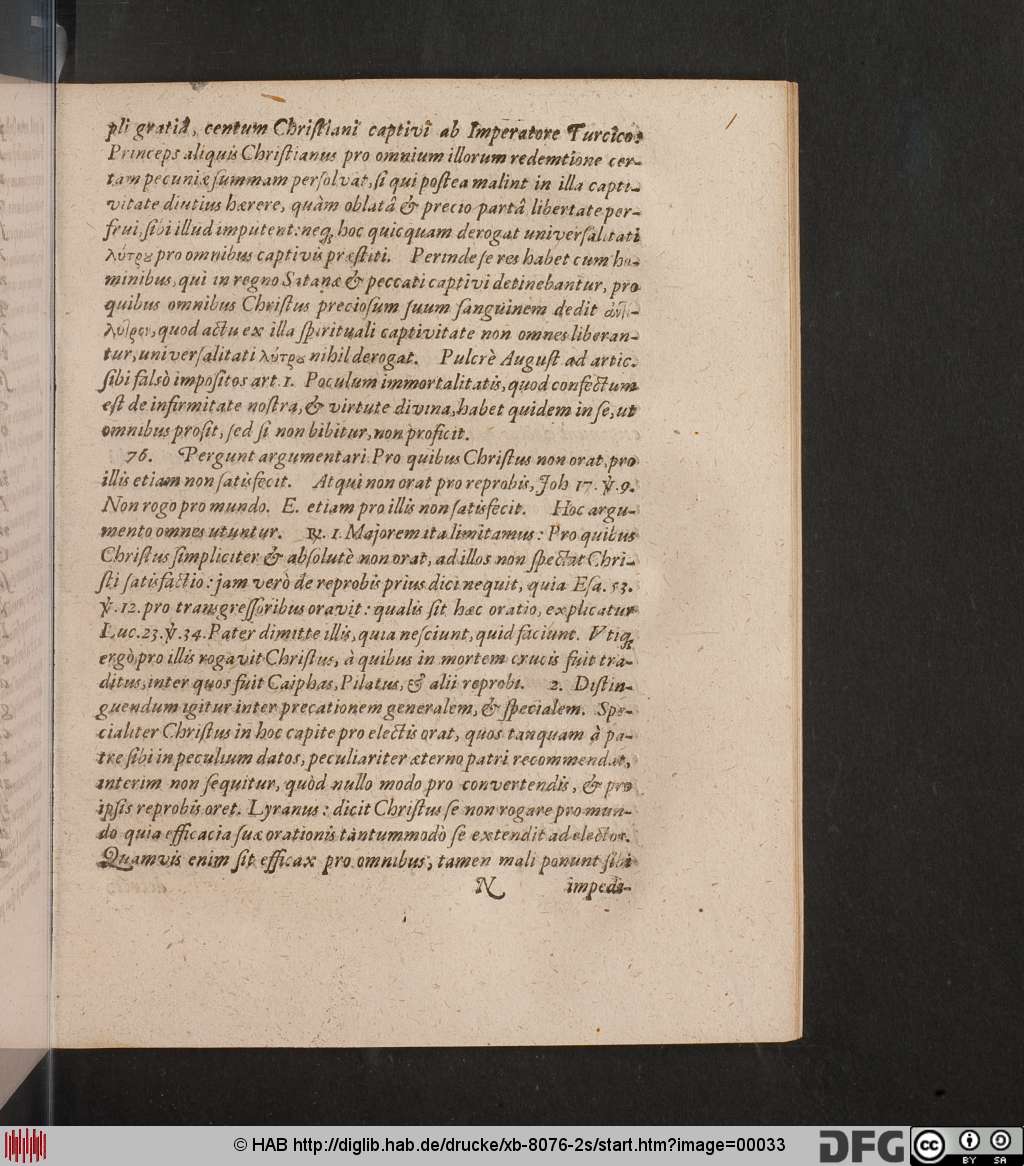 pli gratiâ, centum Christiani captivi ab Imperatore Turcico:
Princeps aliquis Christianus pro omnium illorum redemtione cer-
tam pecuniæ summam persolvat, si qui postea malint in illa capti-
vitate diutius hærere, quàm oblatâ & precio partâ libertate per-
frui, sibi illud imputent: neq; hoc quicquam derogat universalitati
λύτρȣ pro omnibus captivis præstiti. Perinde se res habet cum ho-
minibus, qui in regno Satanæ & peccati captivi detinebantur, pro
quibus omnibus Christus preciosum suum sanguinem dedit ἀντί-
λυτρον, quod actu ex illa spirituali captivitate non omnes liberan-
tur, universalitati λύτρȣ nihil derogat. Pulcrè August ad artic.
sibi falsò impositos art. 1. Poculum immortalitatis, quod confectum
est de infirmitate nostra, & virtute divina, habet quidem in se, ut
omnibus prosit, sed si non bibitur, non proficit.
76. Pergunt argumentari. Pro quibus Christus non orat, pro
illis etiam non satisfecit. Atqui non orat pro reprobis, Joh 17. ℣. 9.
Non rogo pro mundo. E. etiam pro illis non satisfecit. Hoc argu-
mento omnes utuntur. ℞. 1. Majorem ita limitamus: Pro quibus
Christus simpliciter & absolutè non orat, ad illos non spectat Chri-
sti satisfactio: jam verò de reprobis prius dici nequit, quia Esa. 53.
℣. 12. pro transgressoribus oravit: qualis sit hæc oratio, explicatur
Luc. 23. ℣. 34. Pater dimitte illis, quia nesciunt, quid faciunt. Utiq;
ergò pro illis rogavit Christus, à quibus in mortem crucis fuit tra-
ditus, inter quos fuit Caiphas, Pilatus, & alii reprobi. 2. Distin-
guendum igitur inter precationem generalem, & specialem. Spe-
cialiter Christus in hoc capite pro electis orat, quos tanquam à pa-
tre sibi in peculium datos, peculiariter æterno patri recommendat,
interim non sequitur, quòd nullo modo pro convertendis, & pro
ipsis reprobis oret. Lyranus: dicit Christus se non rogare pro mun-
do quia efficacia suæ orationis tantummodò se extendit ad electos.
Quamvis enim sit efficax pro omnibus, tamen mali ponunt sibi
N impedi-
© HAB http://diglib.hab.de/drucke/xb-8076-2s/start.htm?image=00033
DFG
cc BY SA